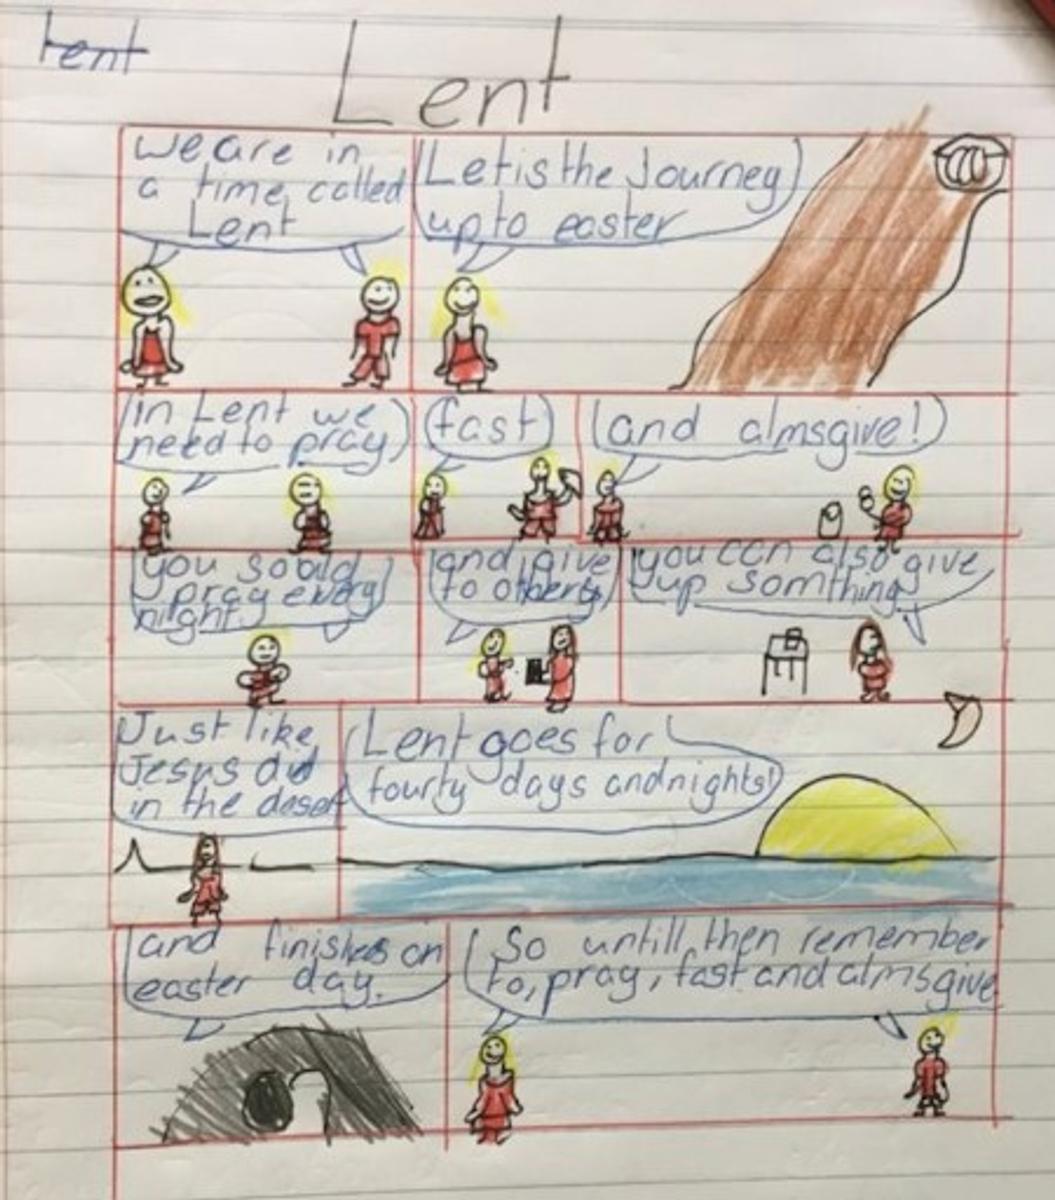 Lent
Lent
we are in
a time called
Lent
Let is the Journey
up to easter
in Lent we
need to pray
fast
and almsgive!
you sould
pray every
night
and give
to others
you can also give
up somthing
Just like
Jesus did
in the desert
Lent goes for
fourty days and nights!
and finishes on
easter day.
So untill then remember
to, pray, fast and almsgive